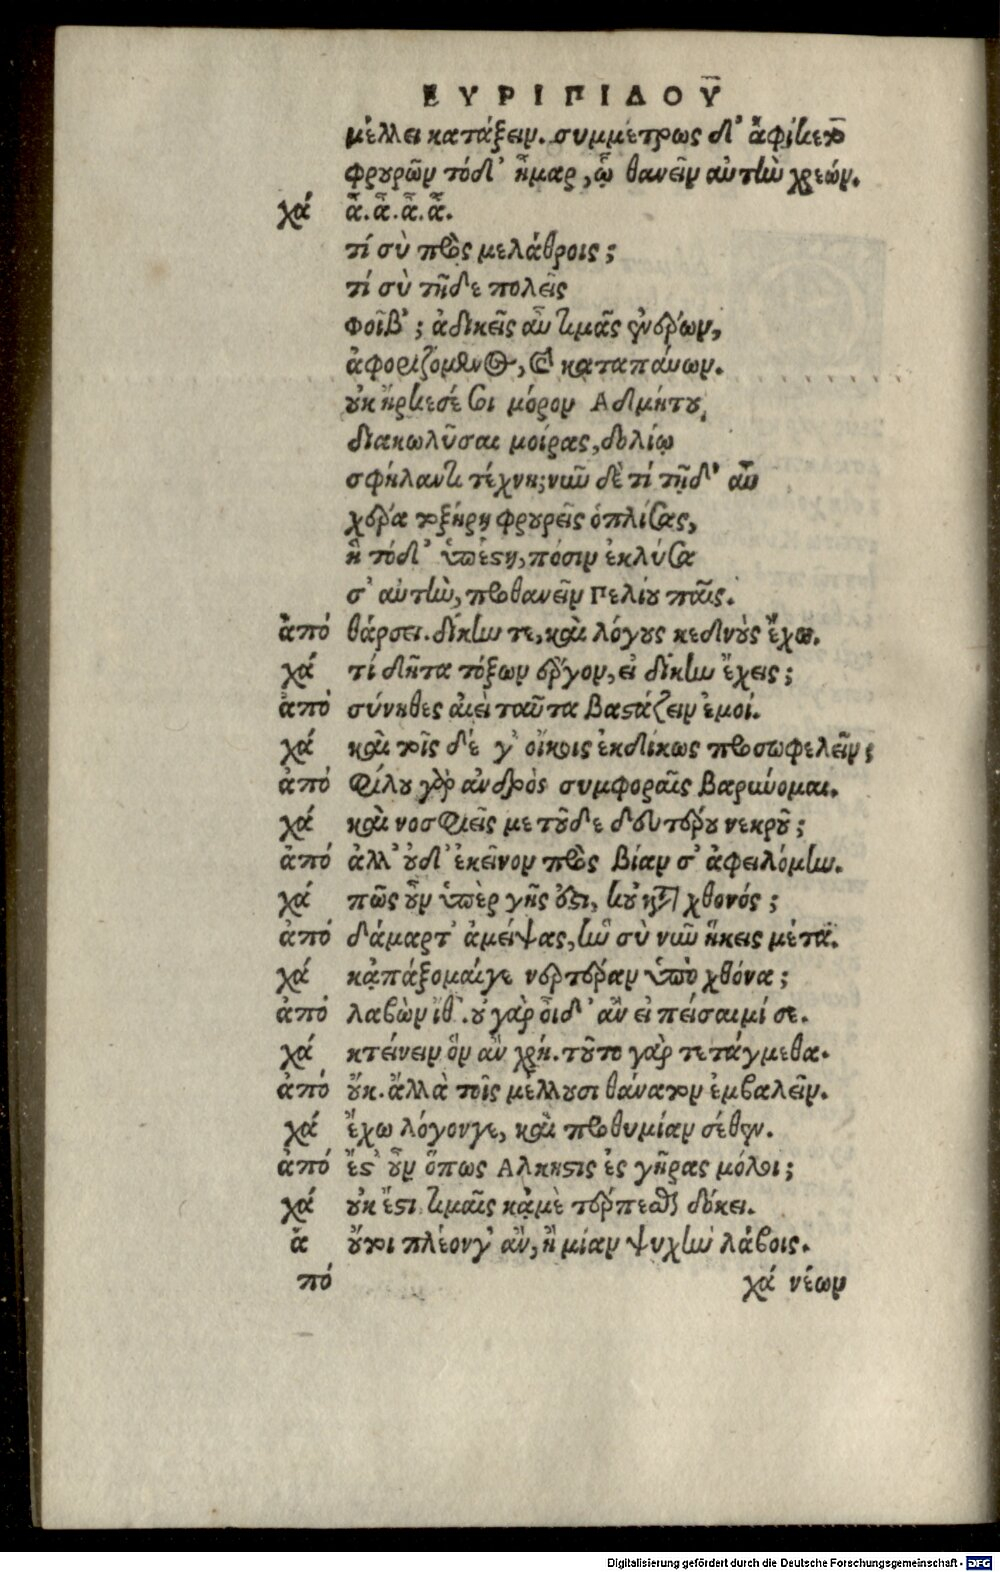 ΕΥΡΙΠΙΔΟΥ
μέλλει κατάξειν. συμμέτρως δ' ἀφίκετο
φρουρῶν τόδ' ἦμαρ, ᾧ θανεῖν αὐτὴν χρεών.
χά ἆ. ἆ. ἆ. ἆ.
τί σὺ πρὸς μελάθροις;
τί σὺ τῇδε πολεῖς
φοῖβ'; ἀδικεῖς αὖ τιμᾶς ἐνέρων,
ἀφοριζόμενος, καὶ καταπάυων.
οὐκ ἤρκεσέ σοι μόρον Ἀδμήτου,
διακωλῦσαι μοίρας, δολίῳ
σφήλαντι τέχνῃ; νῦν δὲ τί τῇδ' αὖ
χέρα τοξήρη φρουρεῖς ὁπλίσας,
ἣ τόδ' ὑπέστη, πόσιν ἐκλύσα
σ' αὐτὴν, προθανεῖν Πελίου παῖς.
ἀπό θάρσει. δίκην τε, καὶ λόγους κεδνοὺς ἔχω.
χά τί δῆτα τόξων ἔργον, εἰ δίκην ἔχεις;
ἀπό σύνηθες αἰεὶ ταῦτα βαστάζειν ἐμοί.
χά καὶ τοῖς δέ γ' οἴκοις ἐκδίκως προσωφελεῖν;
ἀπό φίλου γὰρ ἀνδρὸς συμφοραῖς βαρύνομαι.
χά καὶ νοσφιεῖς με τοῦδε δευτέρου νεκροῦ;
ἀπό ἀλλ' οὐδ' ἐκεῖνον πρὸς βίαν σ' ἀφειλόμην.
χά πῶς οὖν ὑπὲρ γῆς ὅστι, κοὐ κάτω χθονός;
ἀπό δάμαρτ' ἀμείψας, ἣν σὺ νῦν ἥκεις μέτα.
χά κᾀπάξομαίγε νερτέραν ὑπὸ χθόνα;
ἀπό λαβὼν ἴθ'. οὐ γὰρ οἶδ' ἂν εἰ πείσαιμί σε.
χά κτείνειν ὃν ἂν χρή. τοῦτο γὰρ τετάγμεθα.
ἀπό οὔκ. ἄλλὰ τοῖς μέλλουσι θάνατον ἐμβαλεῖν.
χά ἔχω λόγονγε, καὶ προθυμίαν σέθεν.
ἀπό ἔστ' οὖν ὅπως Ἄλκηστις ἐς γῆρας μόλοι;
χά οὐκ ἔστι τιμαῖς κᾀμὲ τέρπεσθαι δόκει.
ἀ οὔτοι πλέονγ' ἂν, ἢ μίαν ψυχὴν λάβοις.
πό χά νέων
Digitalisierung gefördert durch die Deutsche Forschungsgemeinschaft - DFG